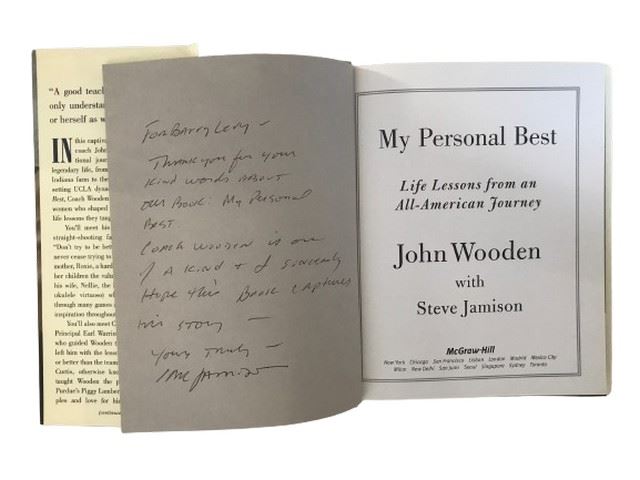 "A good teac
only understa
or herself as w
IN this captiv
coach John
tional journ
legendary life, from
Indiana farm to the
setting UCLA dyna
Best, Coach Wooden
women who shaped
life lessons they taug
You'll meet his
straight-shooting fa
"Don't try to be bett
never cease trying to
mother, Roxie, a hard
her children the valu
his wife, Nellie, the
ukulele virtuoso) wh
through many games
inspiration throughou
You'll also meet C
Principal Earl Warri
who guided Wooden t
left him with the lesson
or better than the team
Curtis, otherwise know
taught Wooden the p
Purdue's Piggy Lamber
ples and love for his
For Barry Levy –
Thank you for your
kind words about
our book: My Personal
Best.
Coach Wooden is one
of a kind & I sincerely
hope this book captures
his story –
Yours truly –
Steve Jamison
My Personal Best
Life Lessons from an
All-American Journey
John Wooden
with
Steve Jamison
McGraw-Hill
New York Chicago San Francisco Lisbon London Madrid Mexico City
Milan New Delhi San Juan Seoul Singapore Sydney Toronto